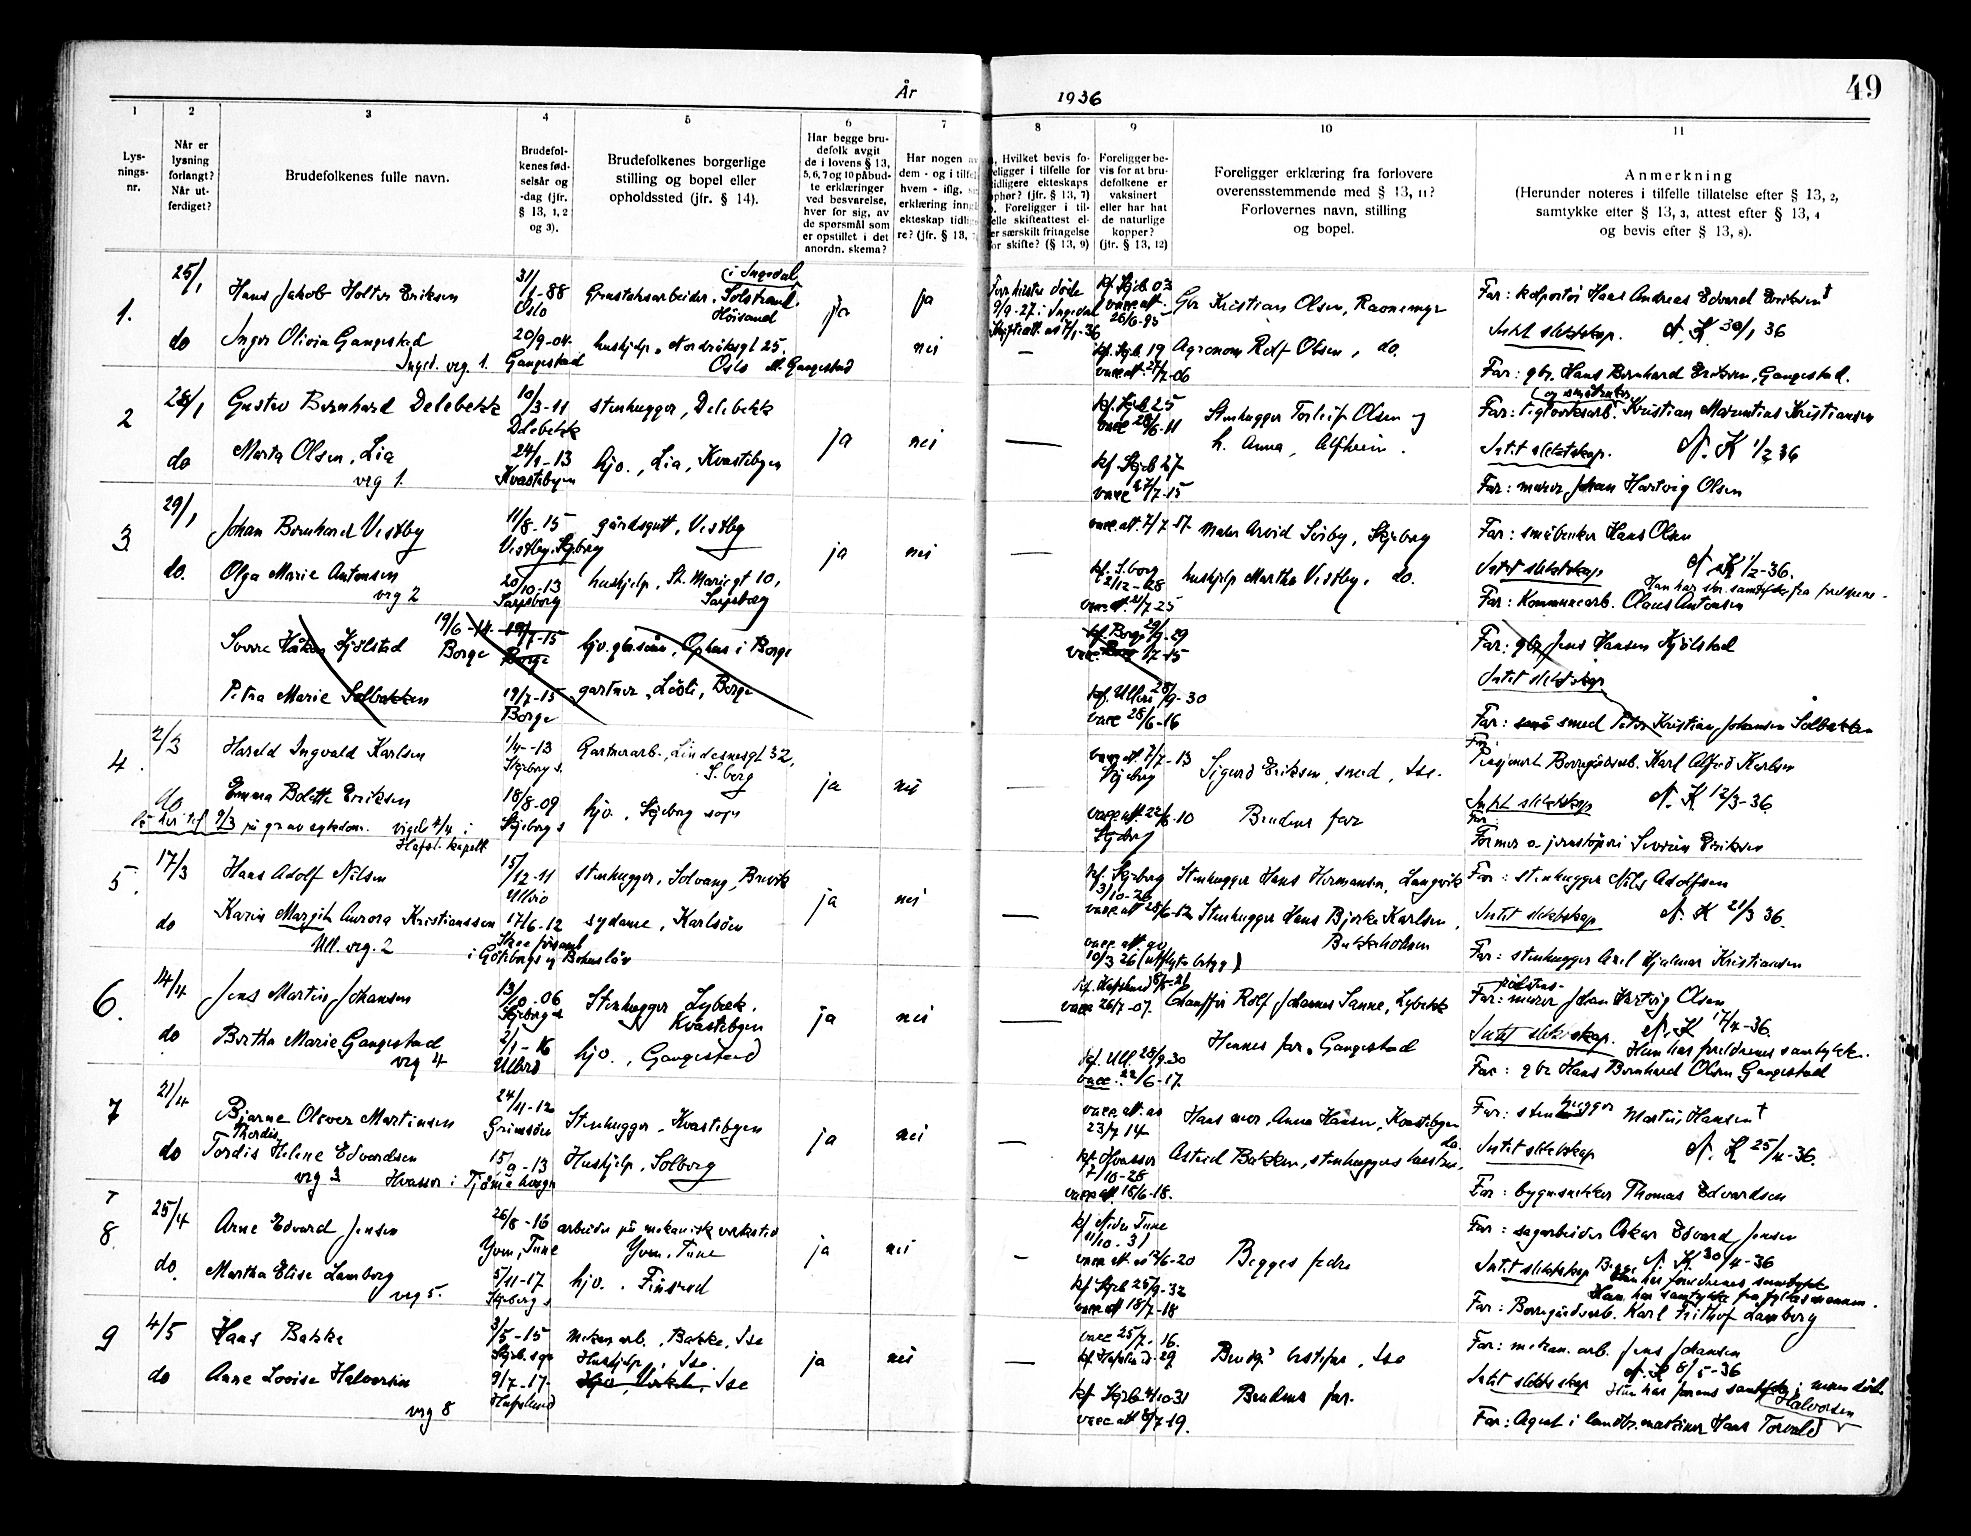 År 1936
49
1 2 3 4 5 6 7 8 9 10 11
Lys-
nings-
nr.
Når er
lysning
forlangt?
Når ut-
ferdiget?
Brudefolkenes fulle navn.
Brudefol-
kenes fød-
selsår og
-dag (jfr.
§ 13, 1, 2
og 3).
Brudefolkenes borgerlige
stilling og bopel eller
opholdssted (jfr. § 14).
Har begge bru-
defolk avgitt
de i lovens § 13,
5, 6, 7 og 10 påbud-
te erklæringer
ved besvarelse,
hver for sig, av
de spørsmål som
er opstillet i det
anordn. skema?
Har nogen av
dem - og i tilfel
hvem - iflg.
erklæring inng
ekteskap tidlig
re? (jfr. § 13,
Hvilket bevis fo-
religger i tilfelle for
tidligere ekteskaps
ophør? (jfr. § 13, 7)
Foreligger i til-
felle skifteattest el-
ler særskilt fritagelse
for skifte? (§ 13, 9)
Foreligger be-
vis for at bru-
defolkene er
vaksinert
eller har hat
de naturlige
kopper?
(jfr. § 13, 12)
Foreligger erklæring fra forlovere
overensstemmende med § 13, 11?
Forlovernes navn, stilling
og bopel.
Anmerkning
(Herunder noteres i tilfelle tillatelse efter § 13, 2,
samtykke efter § 13, 3, attest efter § 13, 4
og bevis efter § 13, 8).
1. 25/1 Hans Jakob Holter Eriksen 31/1-88 Oslo Solstrand (i Ingedal Høisand ja ja
9/9-27 i Ingedal
26/6-95
Gbr Kristian Olsen, Ravnemyr
Far: kolportør Hans Andreas Edvard Eriksen †
Intet slektskap. N. K 30/1 36
do Inger Olivia Gangestad 20/9-04 Gangestad hushjelp, Nordraaksgt 25. Oslo nei —
Inged. vrg 1.
kf. Skjeb 19
vacc att. 27/7-06
Agronom Rolf Olsen, do.
Far: gbr. Hans Bernhard Eriksen, Gangestad.
2 28/1 Gustav Bernhard Delebekk 10/3-11 Delebekk stenhugger, Delebekk ja nei —
kf. Skjeb 25
vacc 28/6-11
Stenhugger Torleif Olsen og
h. Anna, Alfheim.
Far: teglverksarb. Kristian Marentius Kristiansen
Intet slektskap. N. K 1/2 36
do Marta Olsen, Lia 24/1-13 Kvastebyen hjv., Lia, Kvastebyen
vrg 1.
kf. Skjeb 27
vacc 27/7-15
Far: murer Johan Hartvig Olsen
3 29/1 Johan Bernhard Vestby 11/8-15 Vestby, Skjeberg gårdsgutt, Vestby ja nei —
vacc. att. 7/7-17
Maler Arvid Seiby, Skjeberg
Far: småbruker Hans Olsen
Intet slektskap N. K 1/2-36.
do. Olga Marie Antonsen 20/10-13 Sarpsborg hushjelp, St. Mariegt 10, Sarpsborg
vrg 2
kf. S.borg
2/12-28
vacc. att. 21/7 25
hushjelp Martha Vestby, do.
Hun har skr. samtykke fra foreldrene.
Far: Kommunearb. Olaus Antonsen
Sverre Håkon Kjølstad 19/6-14 Borge 19/7-15 Borge hjv. gbr.sønn, Ophus i Borge
kf. Borge 29/9-29
Far: gbr Jens Hansen Kjølstad
Intet slektskap
Petra Marie Solbakken 19/7-15 Borge gartner, Løsli, Borge
kf. Ullerø 28/9-30
vacc 28/6-16
Far: små smed Peter Kristian Johansen Solbakken
4. 2/3 Harald Ingvald Karlsen 1/4-13 Skjeberg s. Gartnerarb., Lindesnesgt 32, S.berg ja nei —
vacc att. 7/7-13
Skjeberg
Sigurd Eriksen, smed, Ise.
Far
Pensjonert Borregårdsarb. Karl Alfred Karlsen
Intet slektskap N. K 12/3-36
do Emma Bolette Eriksen 18/8-09 Skjeberg s hjv., Skjeberg sogn
9/3 på gr av sykdom. vigdes 4/4 i
Hafsl. kapell.
vacc att. 22/6-10
Skjeberg
Brudens far
Far
Former o. jernstøperi Severin Eriksen
5. 17/3 Hans Adolf Nilsen 15/12-11 Ullerø stenhugger, Solvang, Brevik ja nei —
kf. Skjeberg
3/10-26
vacc att 28/6-12
Stenhugger Hans Hermansen, Langvik
Far: stenhugger Nils Adolfsen
Intet slektskap N. K 21/3 36.
do Karin Margith Aurora Kristianssen 17/6-12 sydame, Karlsøen
Ull. vrg. 2
i Göteborgs og Bohuslän
Stenhugger Hans Bjerke Karlsen,
Bukkholmen
vacc. att. av
10/3 26 (utflytn betyg)
Far: stenhugger Axel Hjalmar Kristiansen
6. 14/4 Jens Martin Johansen 13/10-06 Skjeberg s Stenhugger Lybekk, Kvastebyen ja nei —
vacc 26/7-07.
Chauffør Rolf Johannes Sanne, Lybekk
Far: murer Johan Hartvig Olsen
Intet slektskap. N. K 17/4-36.
Hun har foreldrenes samtykke.
do Bertha Marie Gangestad 2/1-16 Ullerø hjv., Gangestad
vrg 4
kf. Ull. 28/9-30
vacc. 22/6-17
Hennes far, Gangestad
Far: gbr Hans Bernhard Olsen Gangestad
7 21/4 Bjarne Oliver Martinsen 24/11-12 Grimsøen Stenhugger, Kvastebyen ja nei —
vacc att. av
23/7 14
Hans mor, Anna Hansen, Kvastebyen
Far: stenhugger Martin Hansen †
Intet slektskap N. K 25/4-36.
do Thordis
Tordis Helene Edvardsen 15/9-13 Hushjelp, Solberg
vrg 3 Hvasser i Tjøme
kf. Hvasser
7/10-28
vacc att. 18/6-18.
Astrid Bakken, stenhuggers hustru, do
Far: bygnsnekker Thomas Edvardsen
8. 25/4 Arne Edvard Jensen 26/8-16 Yven, Tune arbeider på mekanisk verksted
Yven, Tune ja nei —
kf Nedre Tune
11/10-31
vacc att av 12/6-20
Begges fedre
Far: sagarbeider Oskar Edvard Jensen
Intet slektskap N. K. 30/4-36
Hun har foreldrenes samtykke
Han har samtykke fra fylkesmannen.
do. Martha Elise Lamberg 5/11-17 Skjeberg s hjv., Finsrød
vrg 5.
kf Skjeb 25/9-32
vacc att 18/7-18
Far: Borregårdsarb. Karl Frithof Lamberg
9 4/5 Hans Bakke 3/5-15 Skjeb. sgn Meken arb., Bakke, Ise ja nei —
vacc 25/7. 16.
Brudg.s bestefar, Ise
Far: mekan. arb. Jens Johansen
Intet slektskap N. K 8/5-36
do Anne Lovise Halvorsen 9/7-17. Hafslund Hushjelp, Ise.
vrg 8
kf Skjeb 4/10 31
vacc att 8/7-19.
Brudens far.
Hun har farens samtykke, moren død.
Far: Agent i landbr. maskiner Hans Torvald Halvorsen